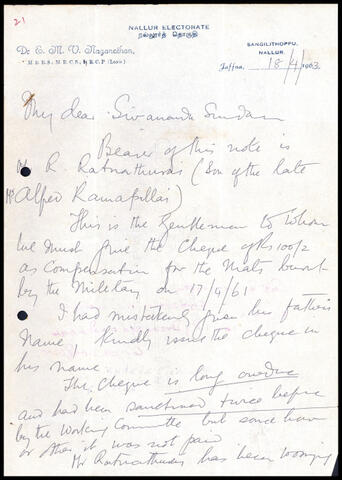 21
NALLUR ELECTORATE
நல்லூர்த் தொகுதி
Dr E. M. V. Naganathan,
M.B.B.S., M.R.C.S., L.R.C.P. (Lon.)
SANGILITHOPPU,
NALLUR,
Jaffna, 18/4/1963
My dear Sivananda Sundam
Bearer of this note is
Mr R. Ratnathurai (Son of the late
Mr Alfred Ramapillai)
This is the gentleman to whom
we must give the cheque of Rs 100/=
as compensation for the Mats burnt
by the Military on 17/4/61
I had mistakenly given his father's
name, Kindly issue the cheque in
his name
The cheque is long overdue
and had been sanctioned twice before
by the Working Committee but somehow
or other it was not paid
Mr Ratnathurai has been worrying